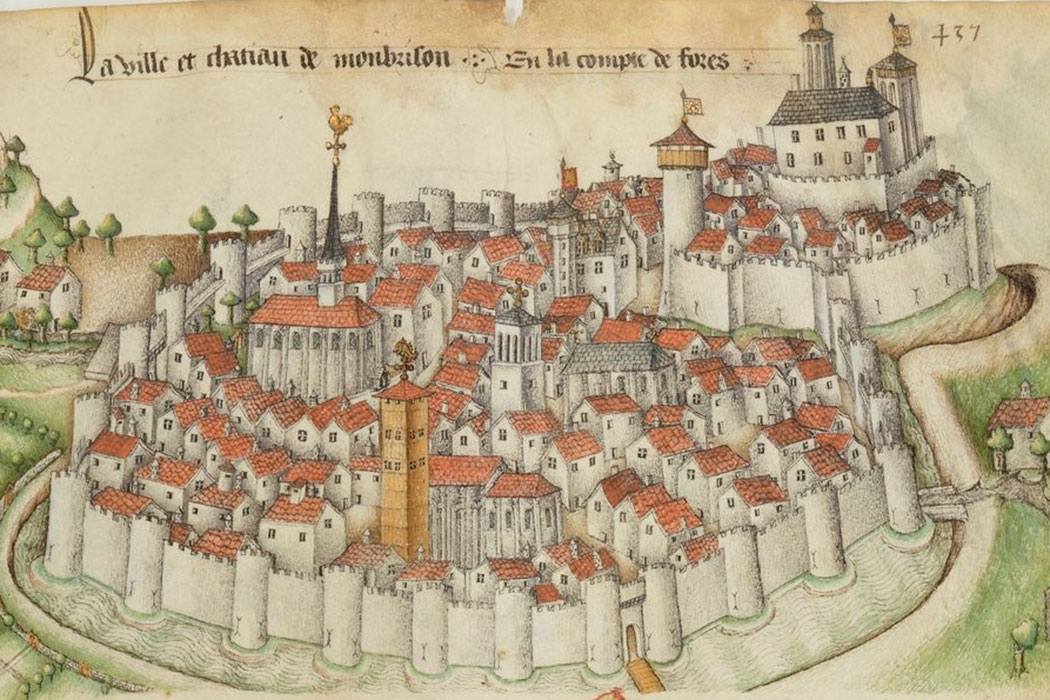 La ville et chatiau de monbrison ·:· En la compte de fores :· 437